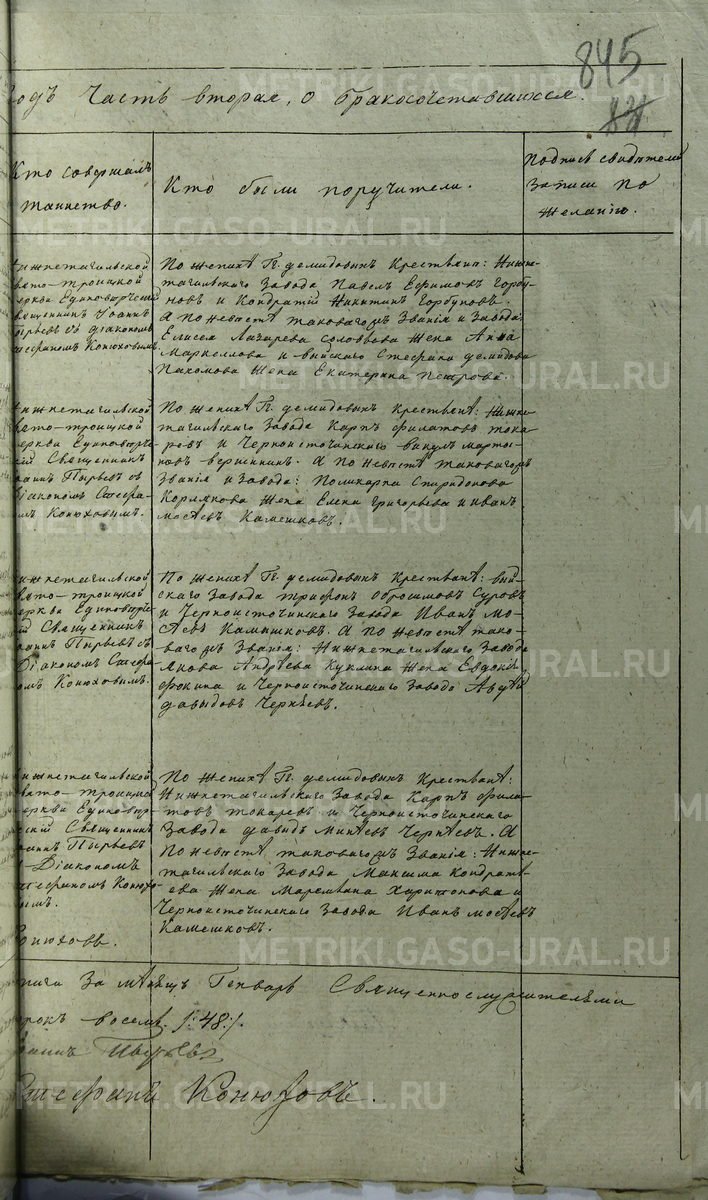 845
годъ часть вторая, о бракосочетавшихся.
Кто совершалъ
таинство.
Кто были поручители.
Подпись свидѣтелей
записи по
желанію.
Нижнетагильской
Свято-троицкой
церкви Единовѣрческій
Священникъ Іоаннъ
Пырьевъ съ діакономъ
Стефаномъ Конюховымъ.
По женихѣ Гг. Демидовыхъ Крестьяне: Нижне-
тагильскаго Завода Павелъ Ефимовъ Горбу-
новъ и Кондратій Никитинъ Горбуновъ.
А по невѣстѣ таковагожъ Званія и Завода
Елисея Лазарева Соловьева Жена Анна
Маркеллова и выйскаго Стефана демидова
Пахомова Жена Екатерина Петрова.
Нижнетагильской
Свято-троицкой
церкви Единовѣрче-
скій Священникъ
Іоаннъ Пырьевъ съ
Діакономъ Стефа-
номъ Конюховымъ.
По женихѣ Гг. демидовыхъ Крестьяне: Нижне-
тагильскаго Завода Карпъ филатовъ тока-
ревъ и Черноисточинскаго викулъ марты-
новъ вершининъ. А по невѣстѣ таковагожъ
Званія и Завода: Поликарпа Спиридонова
Кормякова Жена Елена Григорьева и иванъ
мосѣевъ Камешковъ.
Нижнетагильской
Свято-троицкой
церкви Единовѣрче-
скій Священникъ
Іоаннъ Пырьевъ съ
Діакономъ Стефа-
номъ Конюховымъ.
По женихѣ Гг. демидовыхъ Крестьянѣ: вый-
скаго Завода трифонъ обросимовъ Суровъ
и Черноисточинскаго Завода Иванъ мо-
сѣевъ Камышковъ. А по невѣстѣ тако-
вагожъ Званія: Нижнетагильскаго Завода
Якова Андрѣева Куклина Жена Евдокія
фокина и Черноисточинскаго Завода Авдѣй
давыдовъ Чернѣевъ.
Нижнетагильской
Свято-троицкой
церкви Единовѣр-
ческій Священникъ
Іоаннъ Пырьевъ
съ Діакономъ
Стефаномъ Коню-
ховымъ.
Конюховъ.
По женихѣ Гг. демидовыхъ Крестьянѣ:
Нижнетагильскаго Завода Карпъ фила-
товъ токаревъ и Черноисточинскаго
Завода давидъ минѣевъ Чернѣевъ. А
по невѣстѣ таковагожъ Званія: Нижне-
тагильскаго Завода Максима Кондрать-
ева Жена Маремьяна Харитонова и
Черноисточинскаго Завода Иванъ мосѣевъ
Камешковъ.
книги За мѣсяцъ Генварь Священнослужителями
сорокъ восемь /:48:/.
Іоаннъ Пырьевъ
Стефанъ Конюховъ.
METRIKI.GASO-URAL.RU